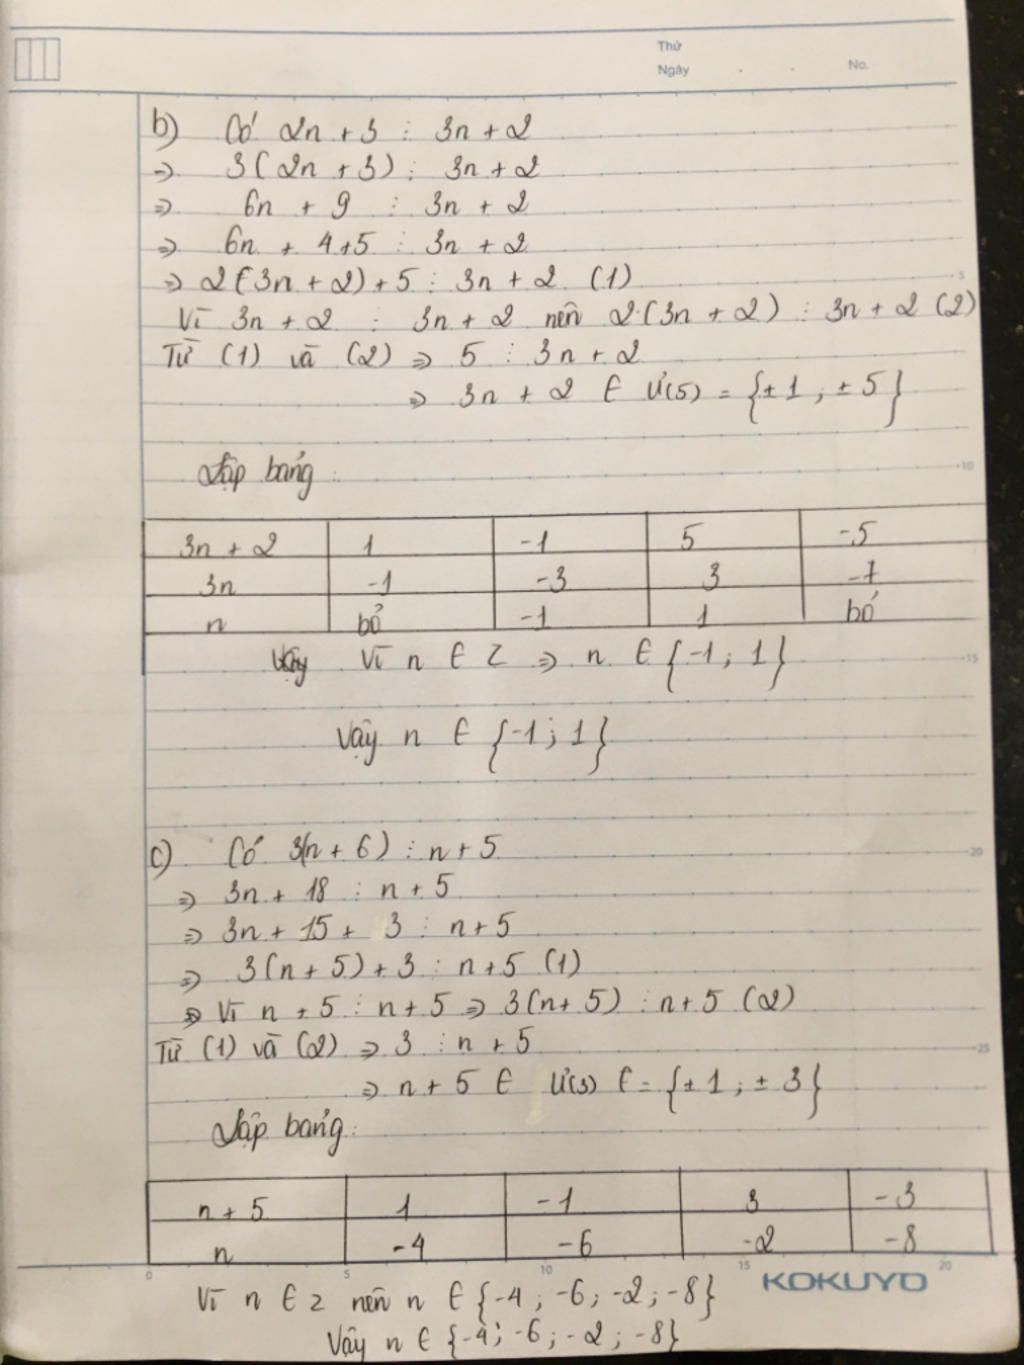 Thứ
Ngày . . No.
b) Có 2n + 3 ⋮ 3n + 2
=> 3(2n + 3) ⋮ 3n + 2
=> 6n + 9 ⋮ 3n + 2
=> 6n + 4+5 ⋮ 3n + 2
=> 2(3n + 2) + 5 ⋮ 3n + 2 (1)
Vì 3n + 2 ⋮ 3n + 2 nên 2(3n + 2) ⋮ 3n + 2 (2)
Từ (1) và (2) => 5 ⋮ 3n + 2
=> 3n + 2 ∈ Ư(5) = {±1 ; ±5}
Lập bảng :
3n + 2 1 -1 5 -5
3n -1 -3 3 -7
n bỏ -1 1 bỏ
Vậy Vì n ∈ Z => n ∈ {-1 ; 1}
Vậy n ∈ {-1 ; 1}
c) Có 3(n + 6) ⋮ n + 5
=> 3n + 18 ⋮ n + 5
=> 3n + 15 + 3 ⋮ n + 5
=> 3(n + 5) + 3 ⋮ n + 5 (1)
=> Vì n + 5 ⋮ n + 5 => 3(n + 5) ⋮ n + 5 (2)
Từ (1) và (2) => 3 ⋮ n + 5
=> n + 5 ∈ Ư(3) ∈ = {±1 ; ±3}
Lập bảng :
n + 5 1 -1 3 -3
n -4 -6 -2 -8
0 5 10 15 20
KOKUYO
Vì n ∈ Z nên n ∈ {-4 ; -6 ; -2 ; -8}
Vậy n ∈ {-4 ; -6 ; -2 ; -8}